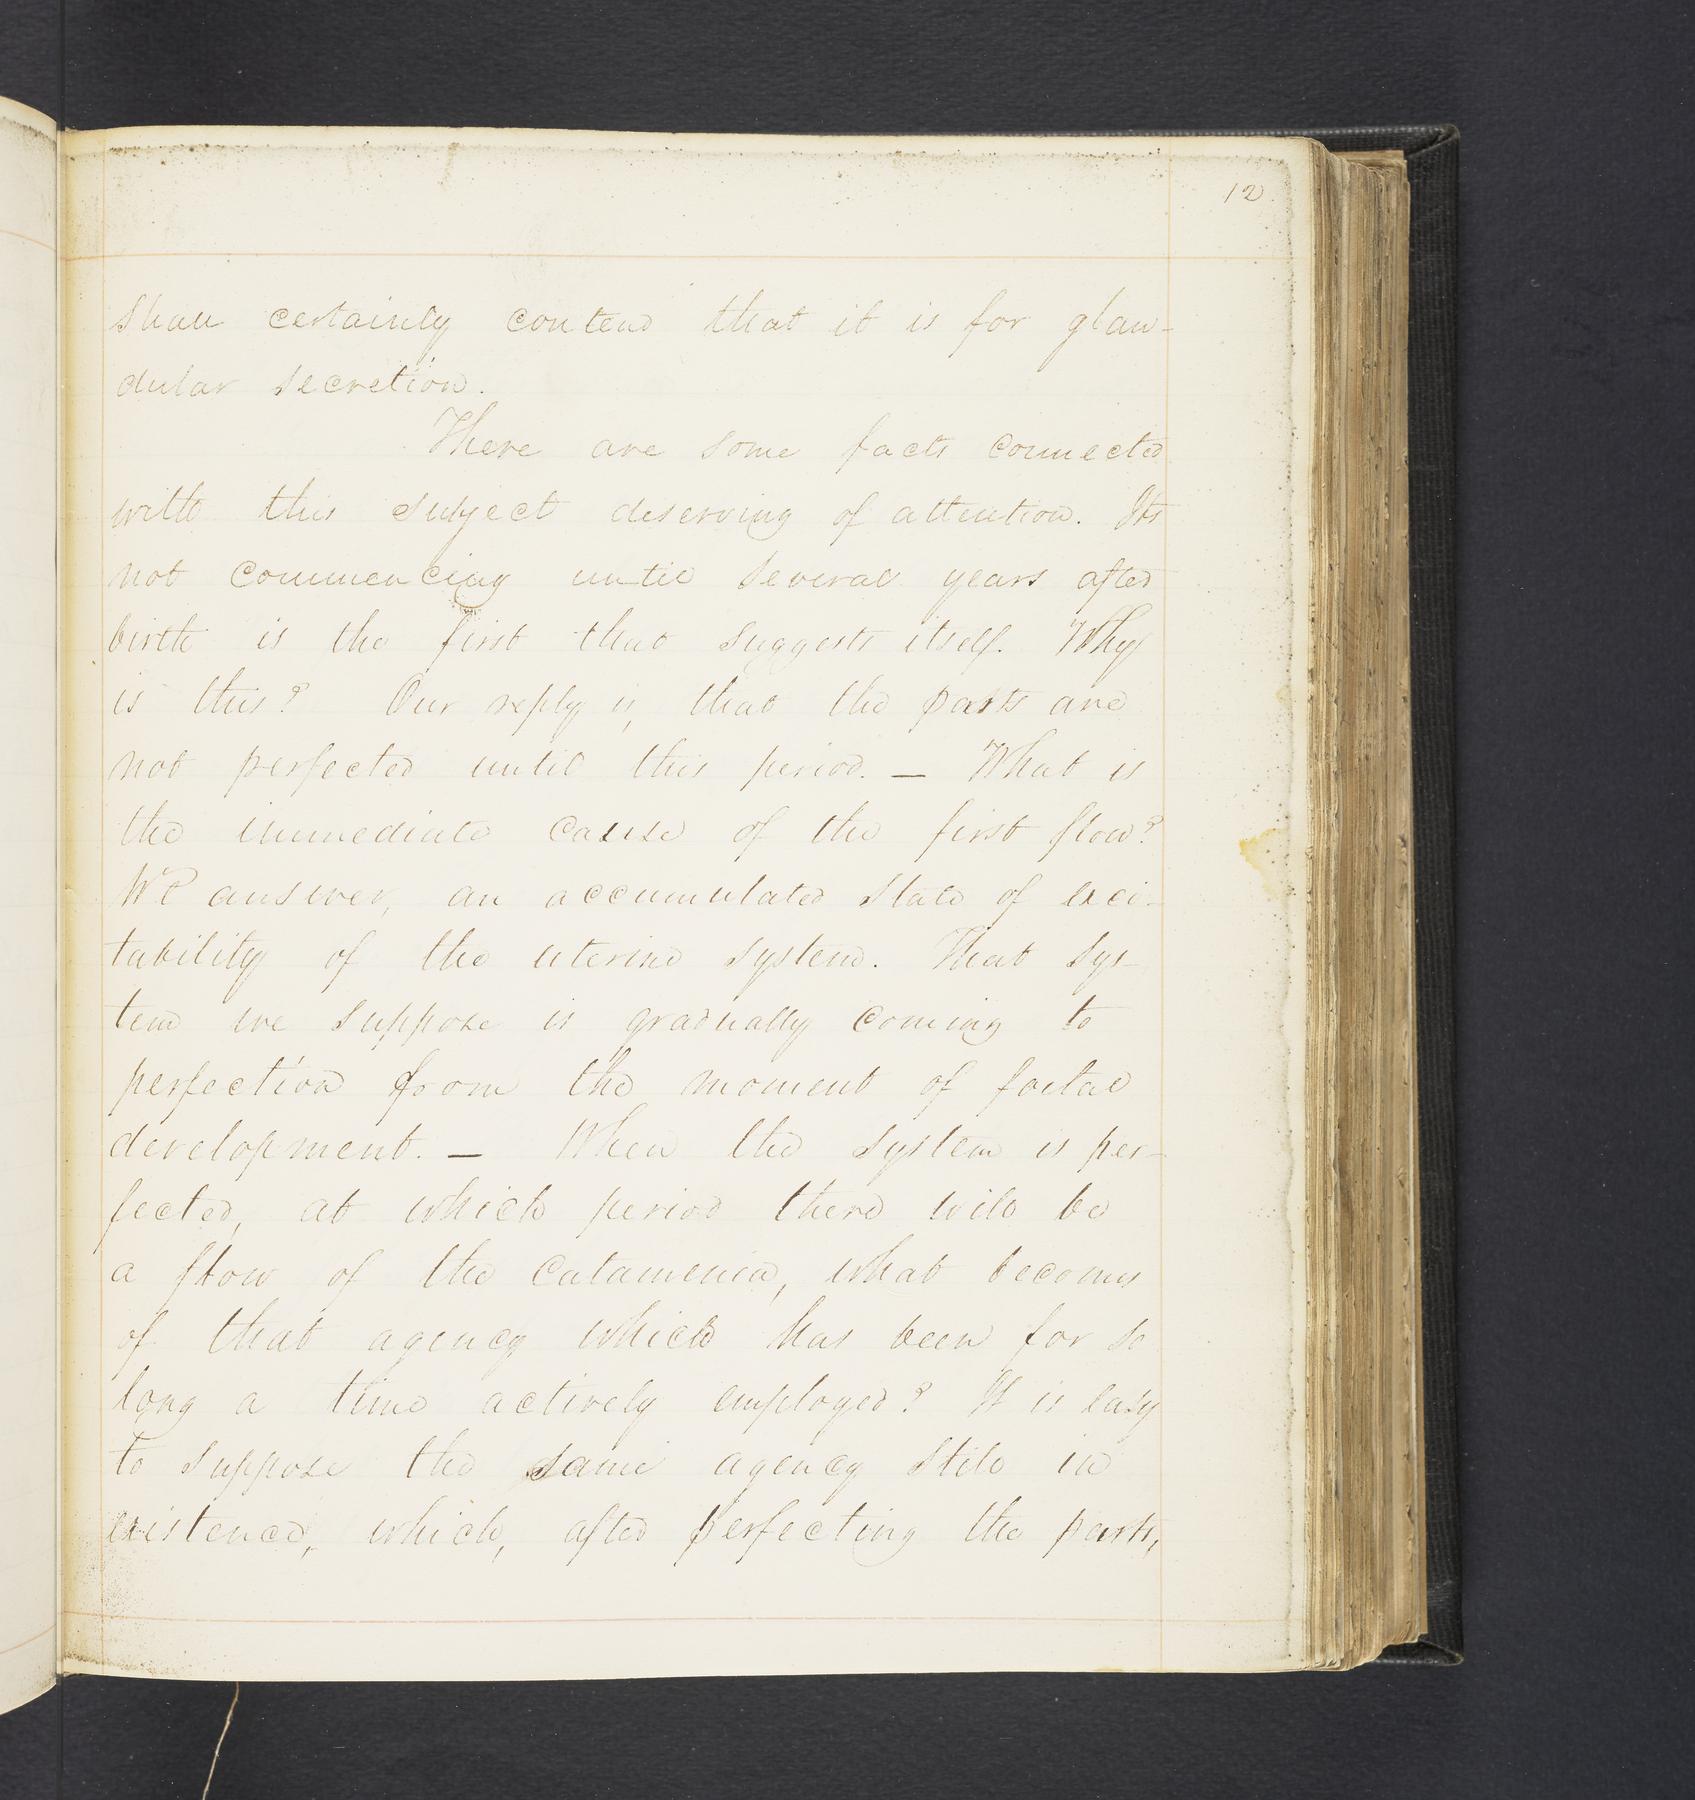 12
shall certainly contend that it is for glan-
dular secretion.
There are some facts connected
with this subject deserving of attention. Its
not commencing until several years after
birth is the first that suggests itself. Why
is this? Our reply is, that the parts are
not perfected until this period. — What is
the immediate cause of the first flow?
We answer, an accumulated state of exci-
tability of the uterine system. That sys-
tem we suppose is gradually coming to
perfection from the moment of foetal
development. — When the system is per-
fected, at which period there will be
a flow of the catamenia, what becomes
of that agency which has been for so
long a time actively employed? It is easy
to suppose the same agency still in
existence, which, after perfecting the parts,